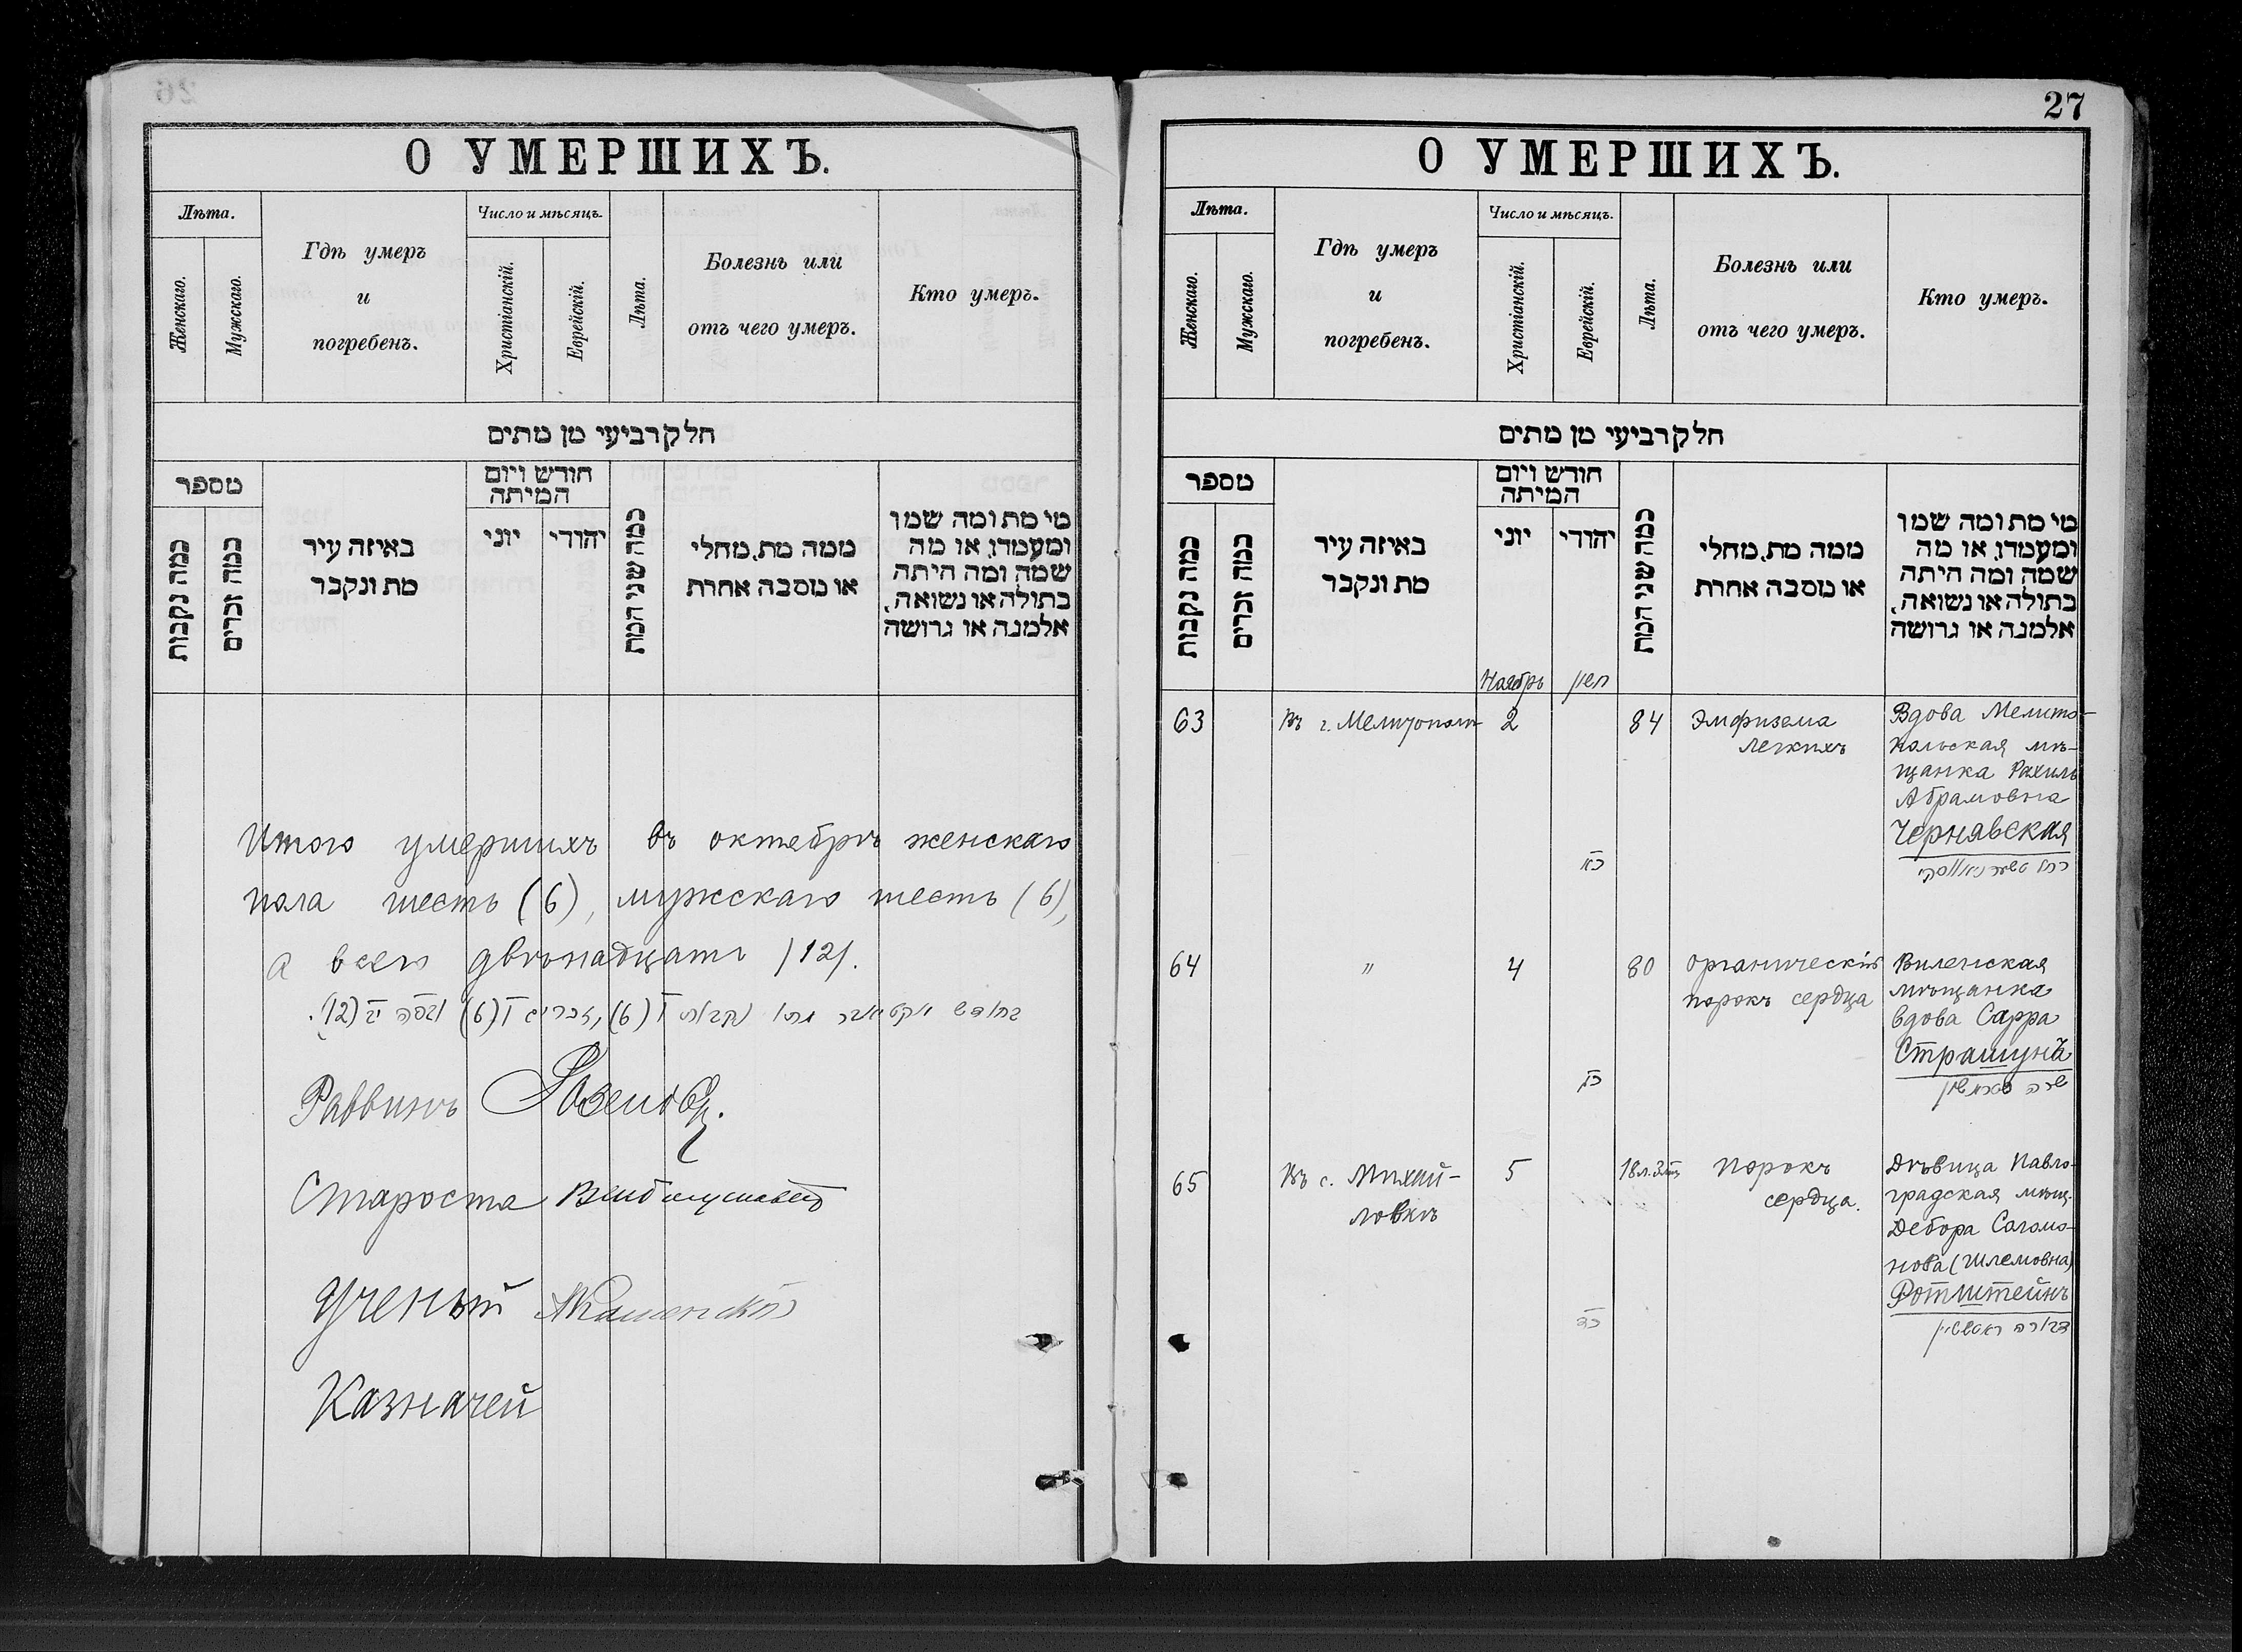 О УМЕРШИХЪ.
Лѣта.
Женскаго.
Мужскаго.
Гдѣ умеръ
и
погребенъ.
Число и мѣсяцъ.
Христіанскій.
Еврейскій.
Лѣта.
Болезнь или
отъ чего умеръ.
Кто умеръ.
חלק רביעי מן מתים
מספר
כמה נקבות
כמה זכרים
באיזה עיר
מת ונקבר
חודש ויום
המיתה
יוני
יהודי
כמה שני המת
ממה מת, מחלי
או מסבה אחרת
מי מת ומה שמו
ומעמדו, או מה
שמה ומה היתה
בתולה או נשואה,
אלמנה או גרושה
Итого умершихъ въ октебрѣ женскаго
пола шесть (6), мужскаго шесть (6),
а всего двѣнадцать /12/.
Раввинъ
Староста
Ученый
Казначей
27
О УМЕРШИХЪ.
Лѣта.
Женскаго.
Мужскаго.
Гдѣ умеръ
и
погребенъ.
Число и мѣсяцъ.
Христіанскій.
Еврейскій.
Лѣта.
Болезнь или
отъ чего умеръ.
Кто умеръ.
חלק רביעי מן מתים
מספר
כמה נקבות
כמה זכרים
באיזה עיר
מת ונקבר
חודש ויום
המיתה
יוני
יהודי
כמה שני המת
ממה מת, מחלי
או מסבה אחרת
מי מת ומה שמו
ומעמדו, או מה
שמה ומה היתה
בתולה או נשואה,
אלמנה או גרושה
Ноябрь
חשון
63
Въ г. Мелитополѣ
2
כא
84
Эмфизема
легкихъ
Вдова Мелито-
польская мѣ-
щанка Рахиль
Абрамовна
Чернявская
64
"
4
80
органическій
порокъ сердца
Виленская
мѣщанка
вдова Сарра
Страшунъ
שרה סטראשון
65
Въ с. Михай-
ловкѣ
5
כד
18 л. 3 мѣц
порокъ
сердца.
Дѣвица Павло-
градская мѣщ.
Дебора Саломо-
нова (Шлемовна)
Ротштейнъ
דבורה ראטשטיין